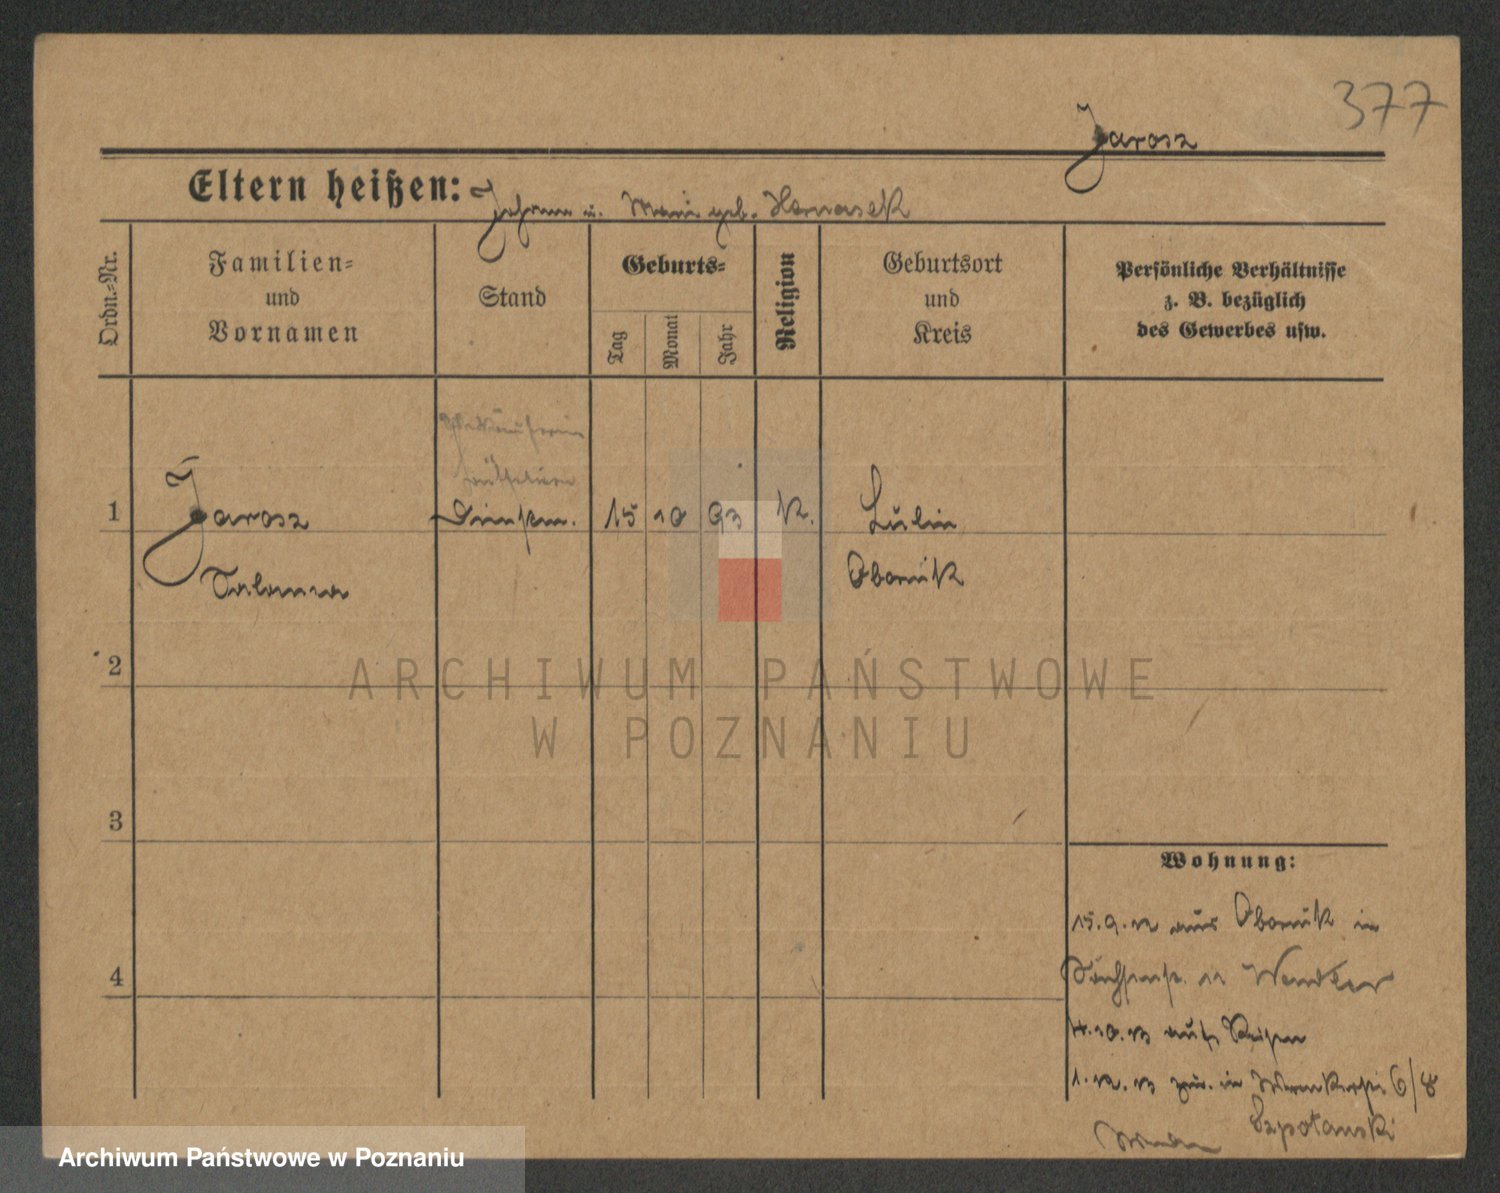 377
Jarosz
Eltern heißen: Johann u. Marie geb. Hanasek
Ordn.-Nr.
Familien-
und
Vornamen
Stand
Geburts-
Tag
Monat
Jahr
Religion
Geburtsort
und
Kreis
Persönliche Verhältnisse
z. B. bezüglich
des Gewerbes usw.
1
Jarosz
Salomea
Dienstm.
15 10 93 K.
Lulin
Obornik
2
3
4
Wohnung:
15.9.12 aus Obornik in
11
4.10.13 auf Reisen
1.12.13 zur. in 6/8
Szpotanski
ARCHIWUM PAŃSTWOWE
W POZNANIU
Archiwum Państwowe w Poznaniu